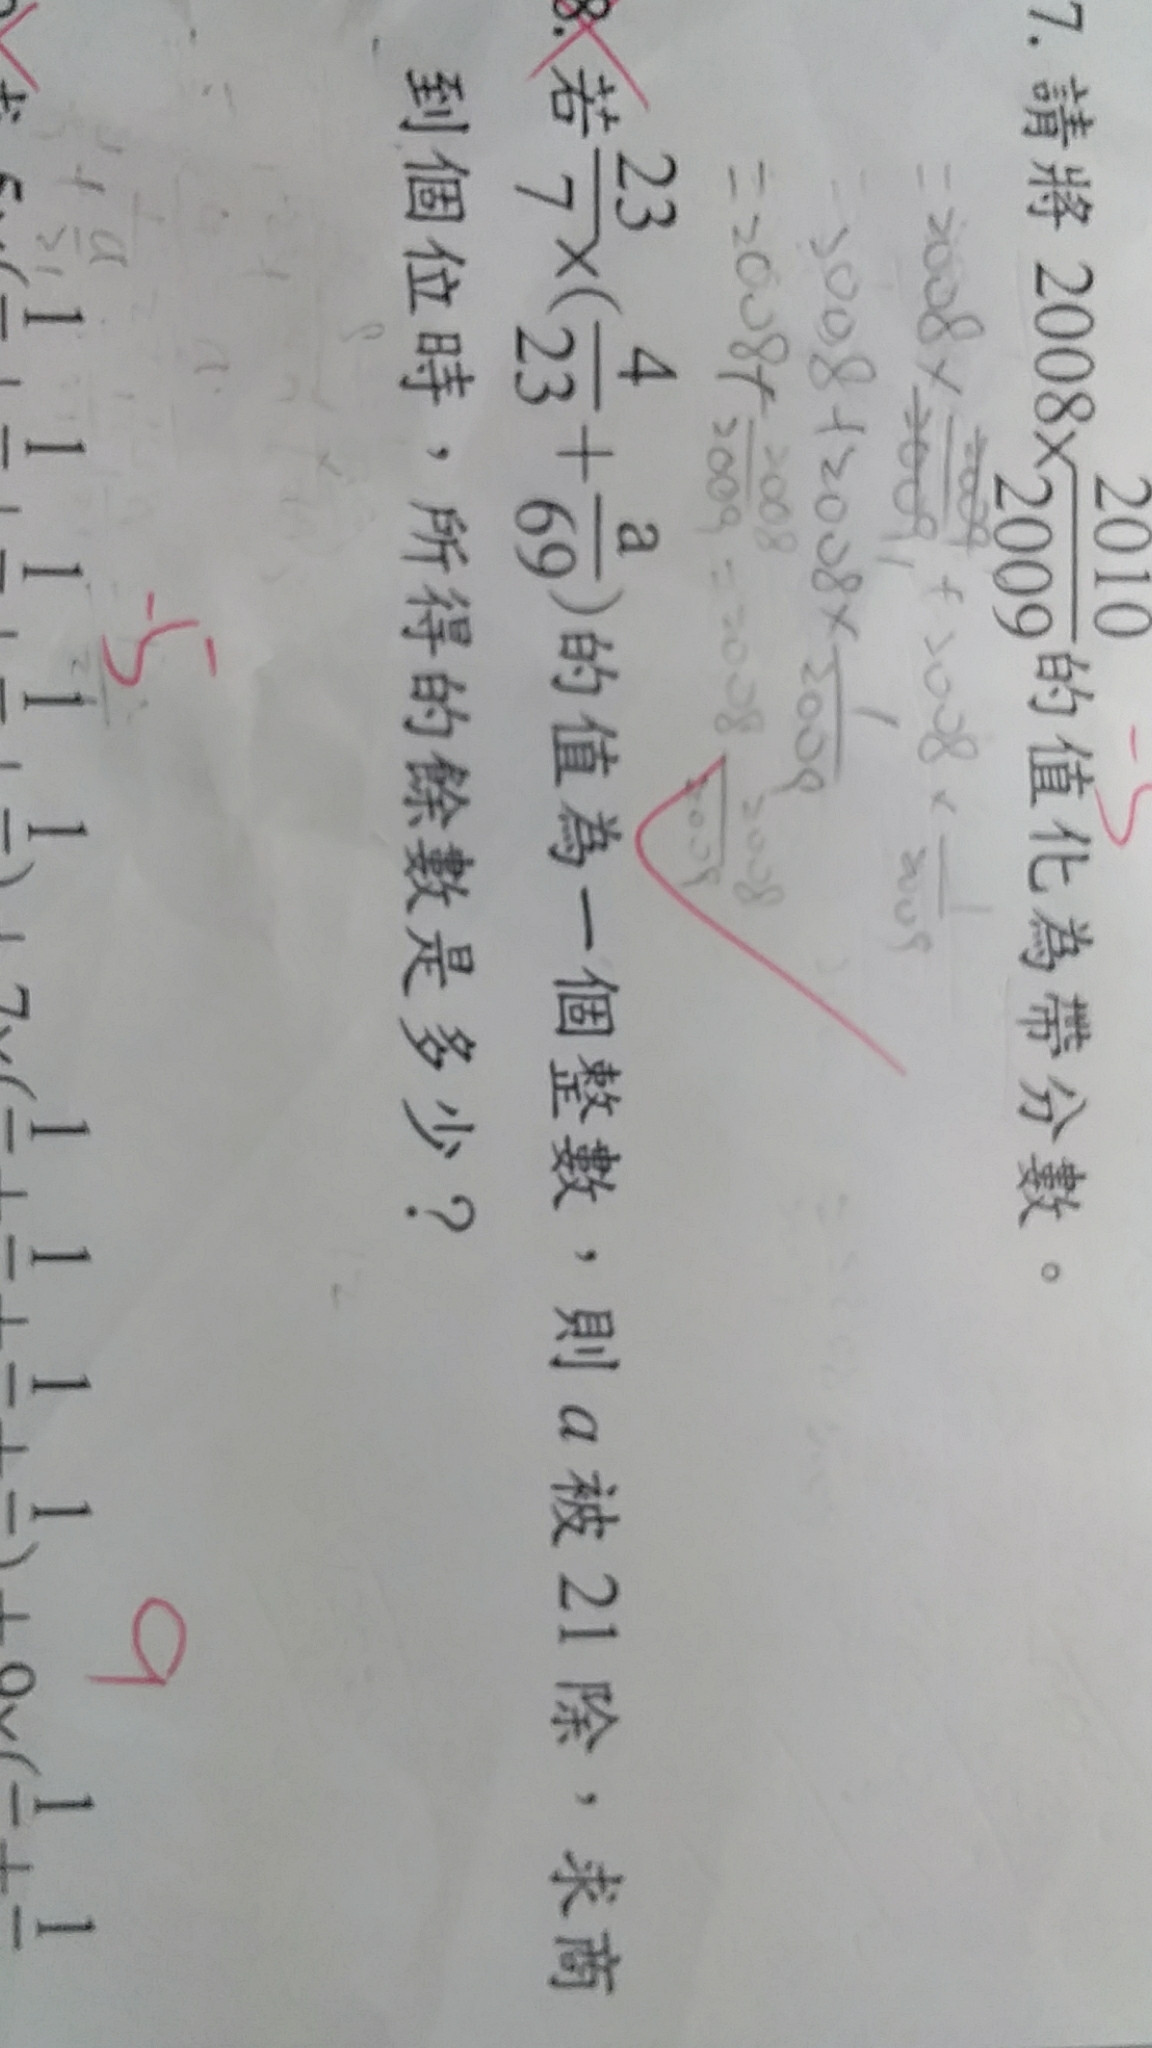 7. 請將 2008×2010/2009的值化為帶分數。
=2008×2009/2009+2008×1/2009
=2008+2008×1/2009
=2008+2008/2009=2008 2008/2009
-5
8. 若23/7×(4/23+a/69)的值為一個整數，則 a 被 21 除，求商
到個位時，所得的餘數是多少？
-5
9